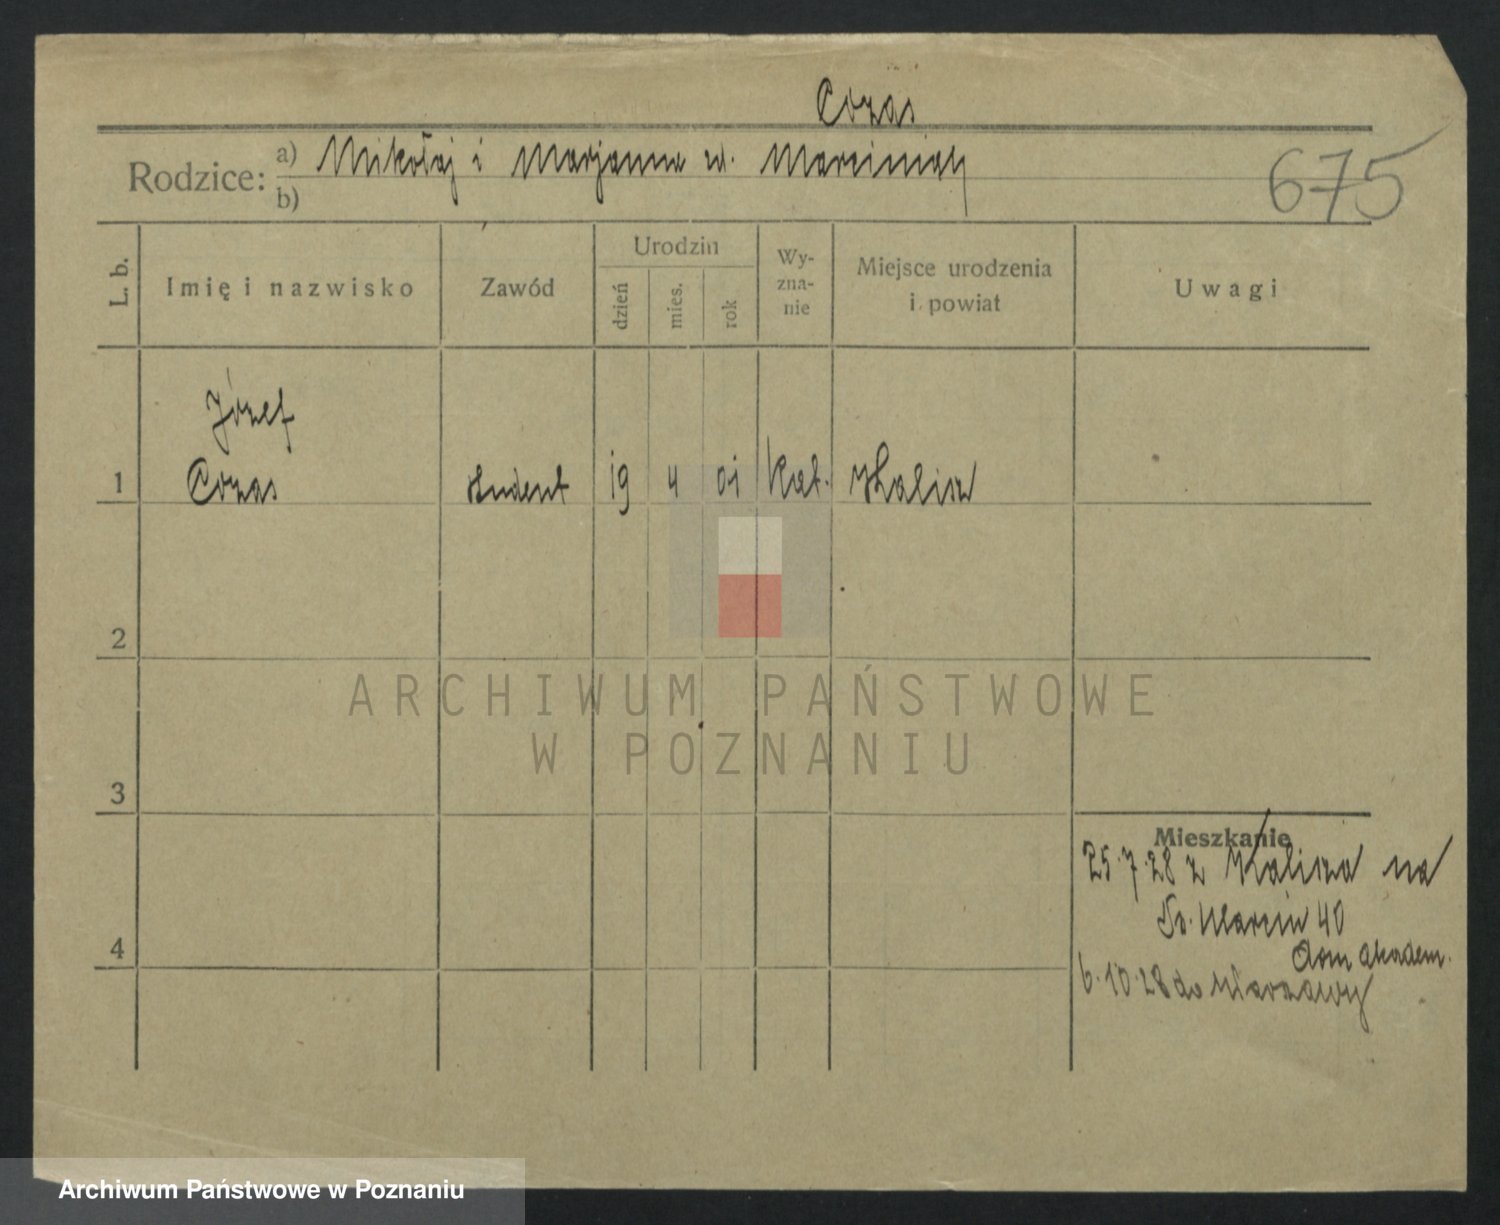 Cozas
Rodzice: a) Mikołaj i Marjanna z d. Marciniak
b)
675
L. b.
Imię i nazwisko
Zawód
Urodzin
dzień
mies.
rok
Wy-
zna-
nie
Miejsce urodzenia
i powiat
Uwagi
Józef
1 Cozas student 19 4 01 Kat. Kalisz
2
3
4
Mieszkanie
25.7.28 z Kalisza na
Św. Marcin 40
dom akadem.
6.10.28 do Warszawy
ARCHIWUM PAŃSTWOWE
W POZNANIU
Archiwum Państwowe w Poznaniu